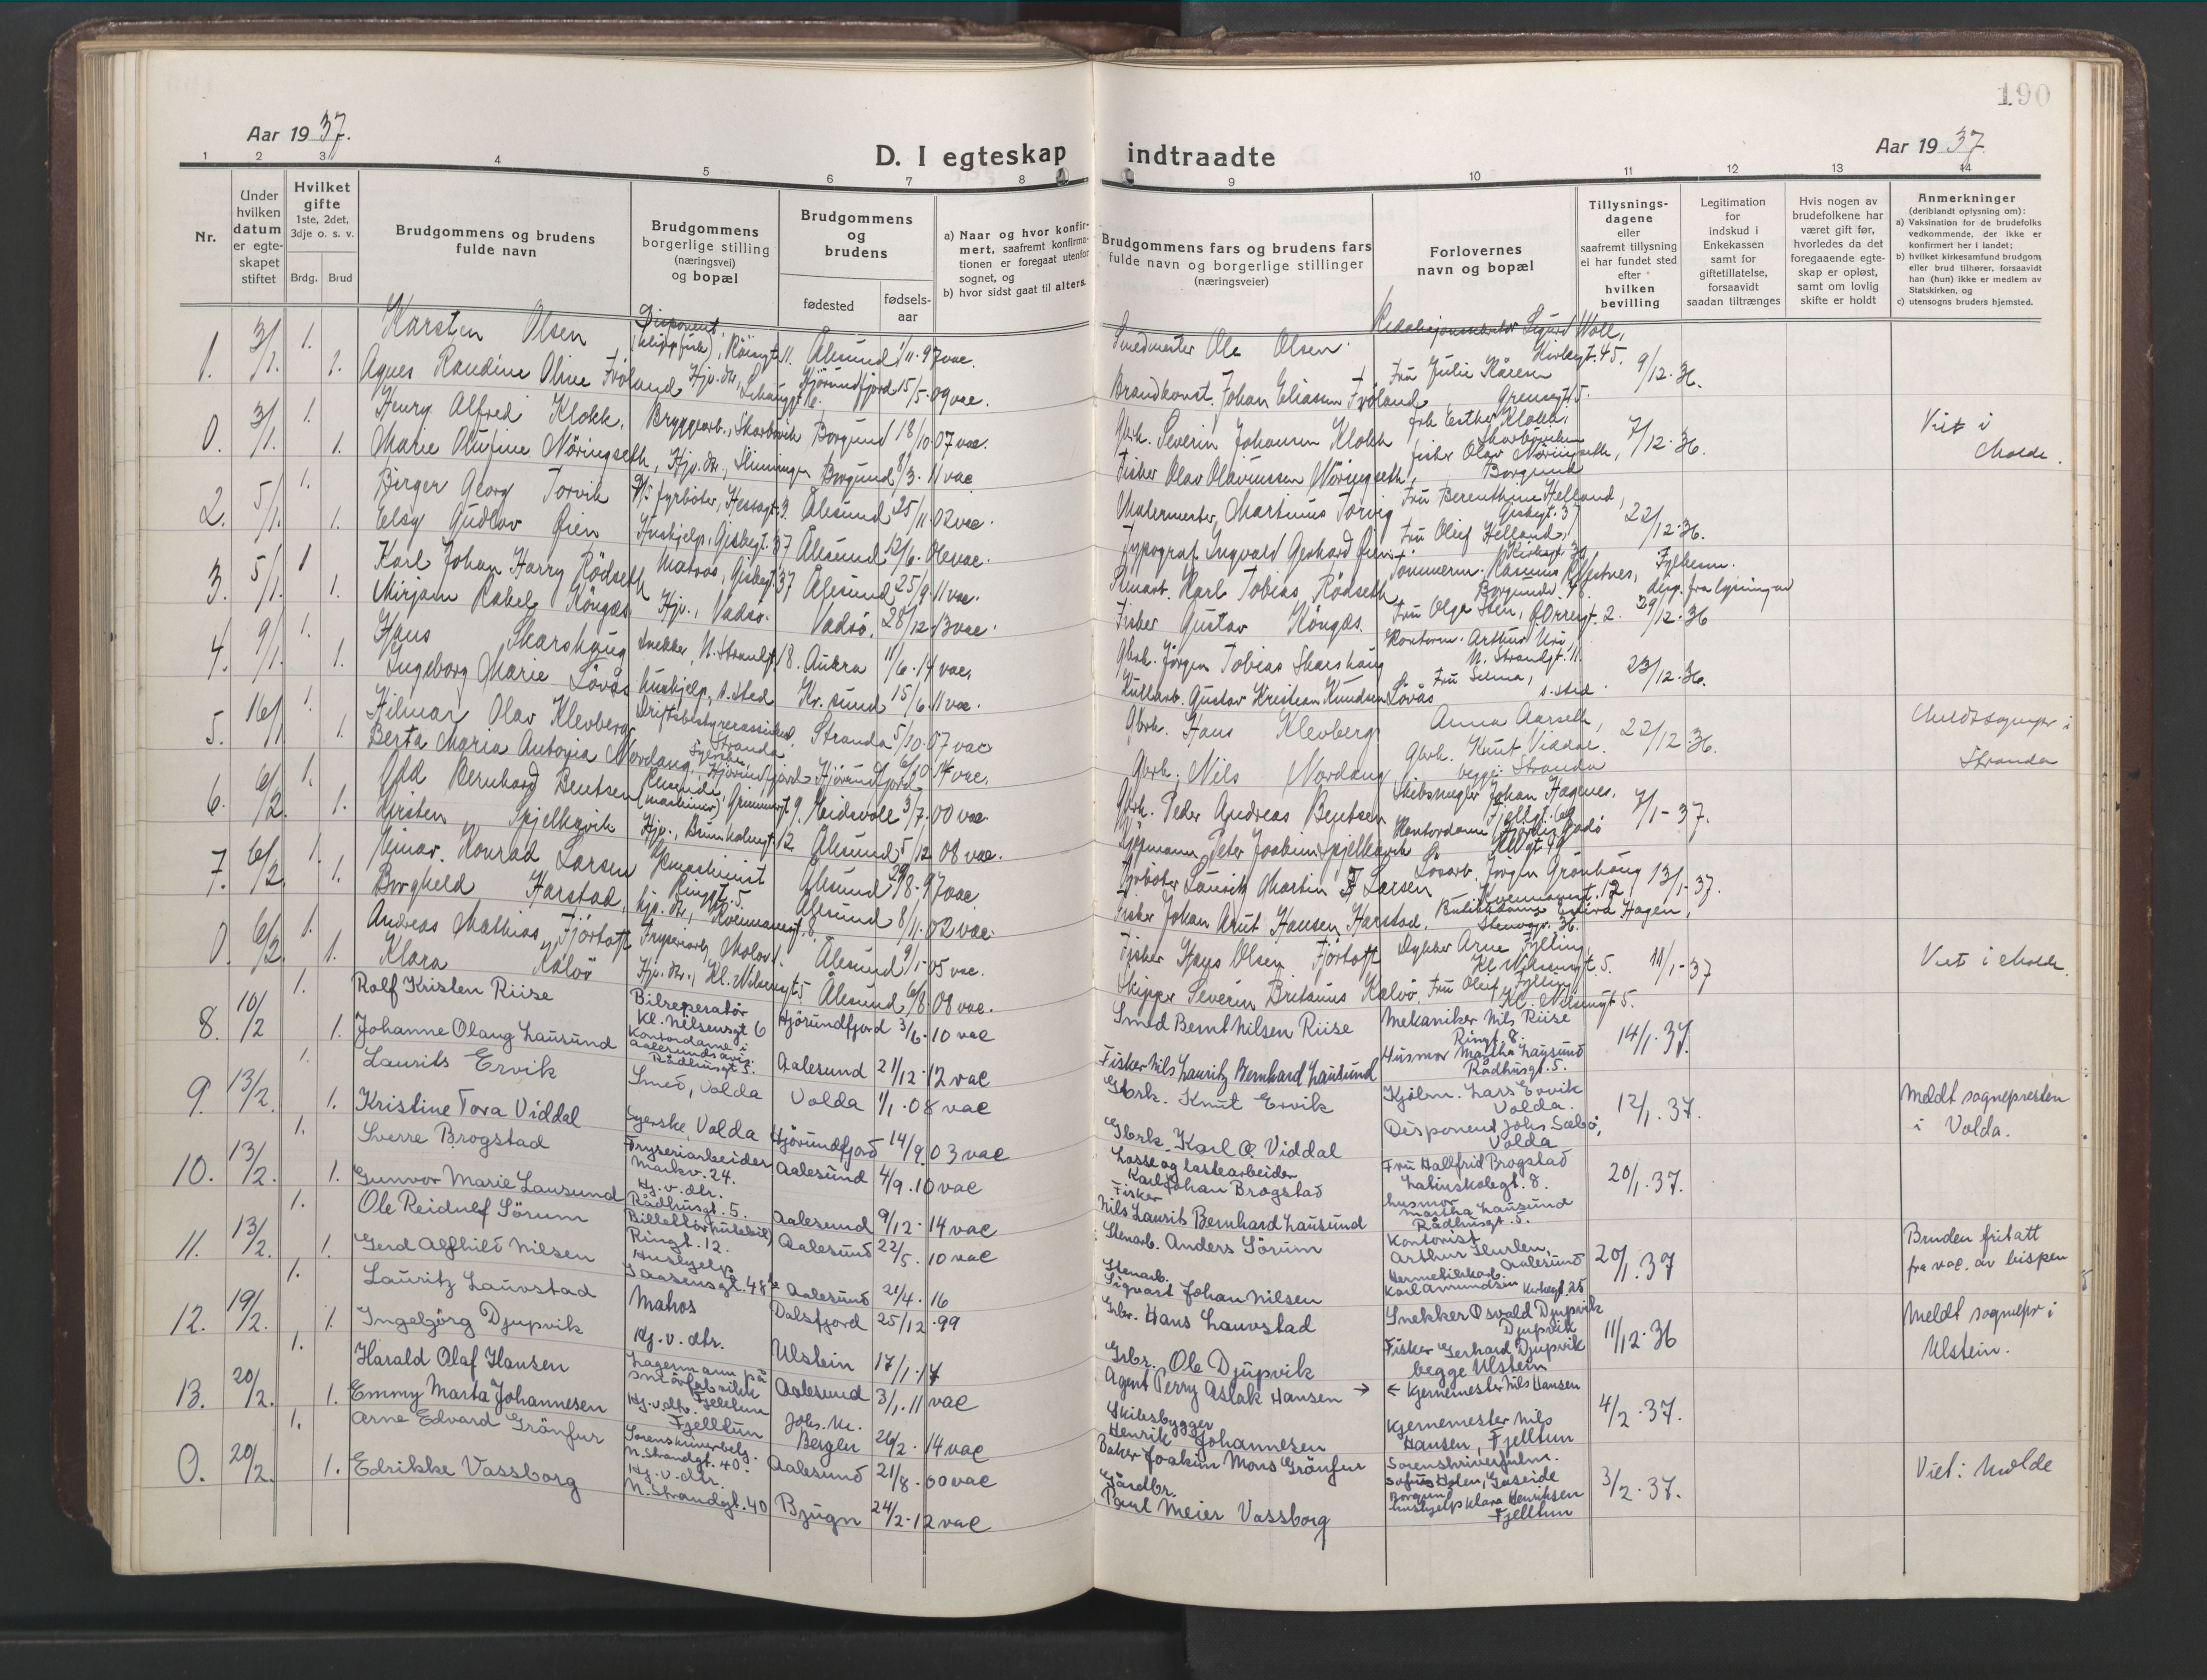 190
Aar 1937.
D. I egteskap indtraadte
Aar 1937
1 2 3 4 5 6 7 8 9 10 11 12 13 14
Nr.
Under hvilken datum er egte-skapet stiftet
Hvilket gifte 1ste, 2det, 3dje o. s. v.
Brdg. Brud
Brudgommens og brudens fulde navn
Brudgommens borgerlige stilling (næringsvei) og bopæl
Brudgommens og brudens
fødested
fødsels-aar
a) Naar og hvor konfir-mert, saafremt konfirma-tionen er foregaat utenfor sognet, og
b) hvor sidst gaat til alters.
Brudgommens fars og brudens fars fulde navn og borgerlige stillinger (næringsveier)
Forlovernes navn og bopæl
Tillysnings-dagene eller saafremt tillysning ei har fundet sted efter hvilken bevilling
Legitimation for indskud i Enkekassen samt for giftetillatelse, forsaavidt saadan tiltrænges
Hvis nogen av brudefolkene har været gift før, hvorledes da det foregaaende egte-skap er opløst, samt om lovlig skifte er holdt
Anmerkninger (deriblandt oplysning om):
a) Vaksination for de brudefolks vedkommende, der ikke er konfirmert her i landet;
b) hvilket kirkesamfund brudgom eller brud tilhører, forsaavidt han (hun) ikke er medlem av Statskirken, og
c) utensogns bruders hjemsted.
1. 3/1. 1. Karsten Olsen Disponent, Ålesund 1/11-97 vac. Smedmester Ole Olsen. Sigurd Woll, Kirkegt. 45. 9/12-36.
1. Agnes Randine Oline Hjv. dtr., Hjörundfjord 15/5-09 vac. Johan Eliassen Frü Julie Kåresen
0. 3/1. 1. Henry Alfred Klokk, Bryggearb., Skarbövik Borgund 18/10-07 vac. Gbrk. Severin Johansen Klokk 7/12-36. Viet i Molde.
1. Marie Olufine Nöringseth, Hjv. dtr., Slinningen Borgund 8/3-11 vac. Fisker Olav Olavinussen Nöringseth, fisker Olav Nöringseth, Borgund
2. 5/1. 1. Birger Georg Torvik fyrböter, Hessagt. 9. Ålesund 25/11-02 vac. Malermester, Martinus Torvig Frü Berenthine Helland, Gisbgt. 37 22/12-36.
1. Elsy Gudlov Øien Hushjelp, Gisbegt. 37 Ålesund 12/6. vac. Typograf Ingvald Gerhard Øien Frü Oleif Helland,
3. 5/1. 1 Karl Johan Harry Rödseth Matros, Gisbgt. 37 Ålesund 25/9-11 vac. Karl Tobias Rödseth Fylkesm. disp. fra lysning av 29/12-36
1. Mirjam Rakel Köngäs Hjv., Vadsö. Vadsö. 28/12-13 vac. Fisker Gustav Köngäs. Frü Olga Sten,
4. 9/1. 1. Hans Skarshaug Snekker, N. Strandgt. 18. Aukra 11/6-14 vac. Gbrk. Jörgen Tobias Skarshaug Kontorm. Arthur Uri, N. Strandgt. 11 23/12-36.
1. Ingeborg Marie Lövås Hushjelp, s. sted Kr. sund 15/6-11 vac. Gustav Kristian Knudsen Lövås Frü Selma, s. sted.
5. 16/1 1. Hilmar Olav Klevberg Stranda Stranda 5/10-07 vac Gbrk. Hans Klevberg Anna Aarseth, 22/12-36. Meldt sognepr i Stranda
1. Berta Maria Antonia Nordang, Hjörundfjord Hjörundfjord vac. Gbrk. Nils Nordang Gbrk. Knut Viddal. begge Stranda
6. 6/2. 1. Bernhard Bentsen 9. Eidsvoll 3/7-00 vac. Gbrk. Peder Andreas Bentsen Skibsmegler Johan Hagenes, 7/1-37.
1. Kirsten Spjelkavik Hjv., Brunholmgt. 12 Ålesund 5/12 08 vac. Kjøpmann Peter Joakim Spjelkavik
7. 6/2. 1. Einar Konrad Larsen Ringgt. 5. Ålesund 29/8-97 vac Fyrböter Laurits Martin Larsen Lösarb. Jörgen Grönhaug 13/1-37.
1. Borghild Harstad, hjv. dtr., 8. Ålesund 8/11-02 vac. Fisker Johan Knut Hansen Harstad. Hagen, Stenvgn. 36.
0. 6/2. 1. Andreas Mathias Fjörtoft Fryseriarb., Ålesund 9/1-05 vac. Fisker Hans Olsen Fjörtoft Dykker Arne Fylling, Kl. Nilsensgt. 5. 18/1-37 Viet i Molde.
1. Klara Kalvö Hjv. dtr., Kl. Nilsensgt. 5 Ålesund 6/8-08 vac. Skipper Severin Britanus Kalvö. Frü Oleif Fylling Kl. Nilsensgt 5.
8. 10/2 1. Rolf Kristen Riise Bilreperatör Kl. Nilsensgt 6 Hjörundfjord 3/6-10 vac Smed Bernt Nilsen Riise Mekaniker Nils Riise Ringt. 8. 14/1.37.
1. Johanne Olaug Lausund Kontordame i Aalesunds avis. Rådhusgt 5. Aalesund 21/12-12 vac Fisker Nils Lauritz Bernhard Lausund Husmor Martha Lausund Rådhusgt. 5.
9. 13/2. 1. Laurits Ervik Smed, Volda Volda 1/1-08 vac Gbrk. Knut Ervik Kjölm. Lars Ervik Volda. 12/1.37. Meldt sognepresten i Volda.
1. Kristine Tora Viddal Syerske, Volda Hjörundfjord 14/9.03 vac Gbrk. Karl O. Viddal Disponent Johs Sæbö, Volda
10. 13/2. 1. Sverre Brogstad Fryseriarbeider Markv. 24. Aalesund 4/9.10 vac Losse og lastearbeider Karl Johan Brogstad Frü Hallfrid Brogstad Latinskolegt. 8. 20/1.37.
1. Gunvor Marie Lausund Hj. v. dtr. Rådhusgt. 5. Aalesund 9/12-14 vac Fisker Nils Laurits Bernhard Lausund husmor Martha Lausund Rådhusgt. 5.
11. 13/2. 1. Ole Reidulf Sörum Billettör (rutebil) Ringt. 12. Aalesund 22/5.10 vac Stenarb. Anders Sörum Kontorist Arthur Hurlen, Aalesund 20/1.37 Bruden fritatt fra vac. av bispen
1. Gerd Alfhild Nilsen Hushjelp I Aasensgt. 48 Aalesund 21/4.16 Stenarb. Sigvart Johan Nilsen Karl Amundsen Kirkegt. 25
12. 19/2. 1. Lauritz Lauvstad Matros Dalsfjord 25/12.99 Grbr. Hans Lauvstad Snekker Osvald Djupvik Djupvik 11/12-36 Meldt sognepr i Ulstein.
1. Ingebjörg Djupvik Hj. v. dtr. Ulstein 17/1.14 Grbr. Ole Djupvik Fisker Gerhard Djupvik begge Ulstein
13. 20/2. 1. Harald Olaf Hansen Lagermann på smörfabrikk Fjelltun Aalesund 3/1.11 vac Agent Perry Aslak Hansen → ← Kjernemester Nils Hansen 4/2.37.
1. Emmy Marta Johannesen Hj. v. dtr. Fjelltun Bergen 26/2-14 vac Skibsbygger Henrik Johannesen Kjernemester Nils Hansen, Fjelltun
0. 20/2. 1. Arne Edvard Grönfur N. Strandgt. 40. Aalesund 21/8-00 vac Baker Joakim Mons Grönfur Sorenskriverfulm. Sofus Holen, Gaseide Borgund 3/2.37. Viet i Molde
1. Edrikke Vassborg Hj. v. dtr. N. Strandgt. 40 Bjugn 24/2-12 vac Gårdbr. Paul Meier Vassborg hushjelp Klara Henriksen Fjelltun